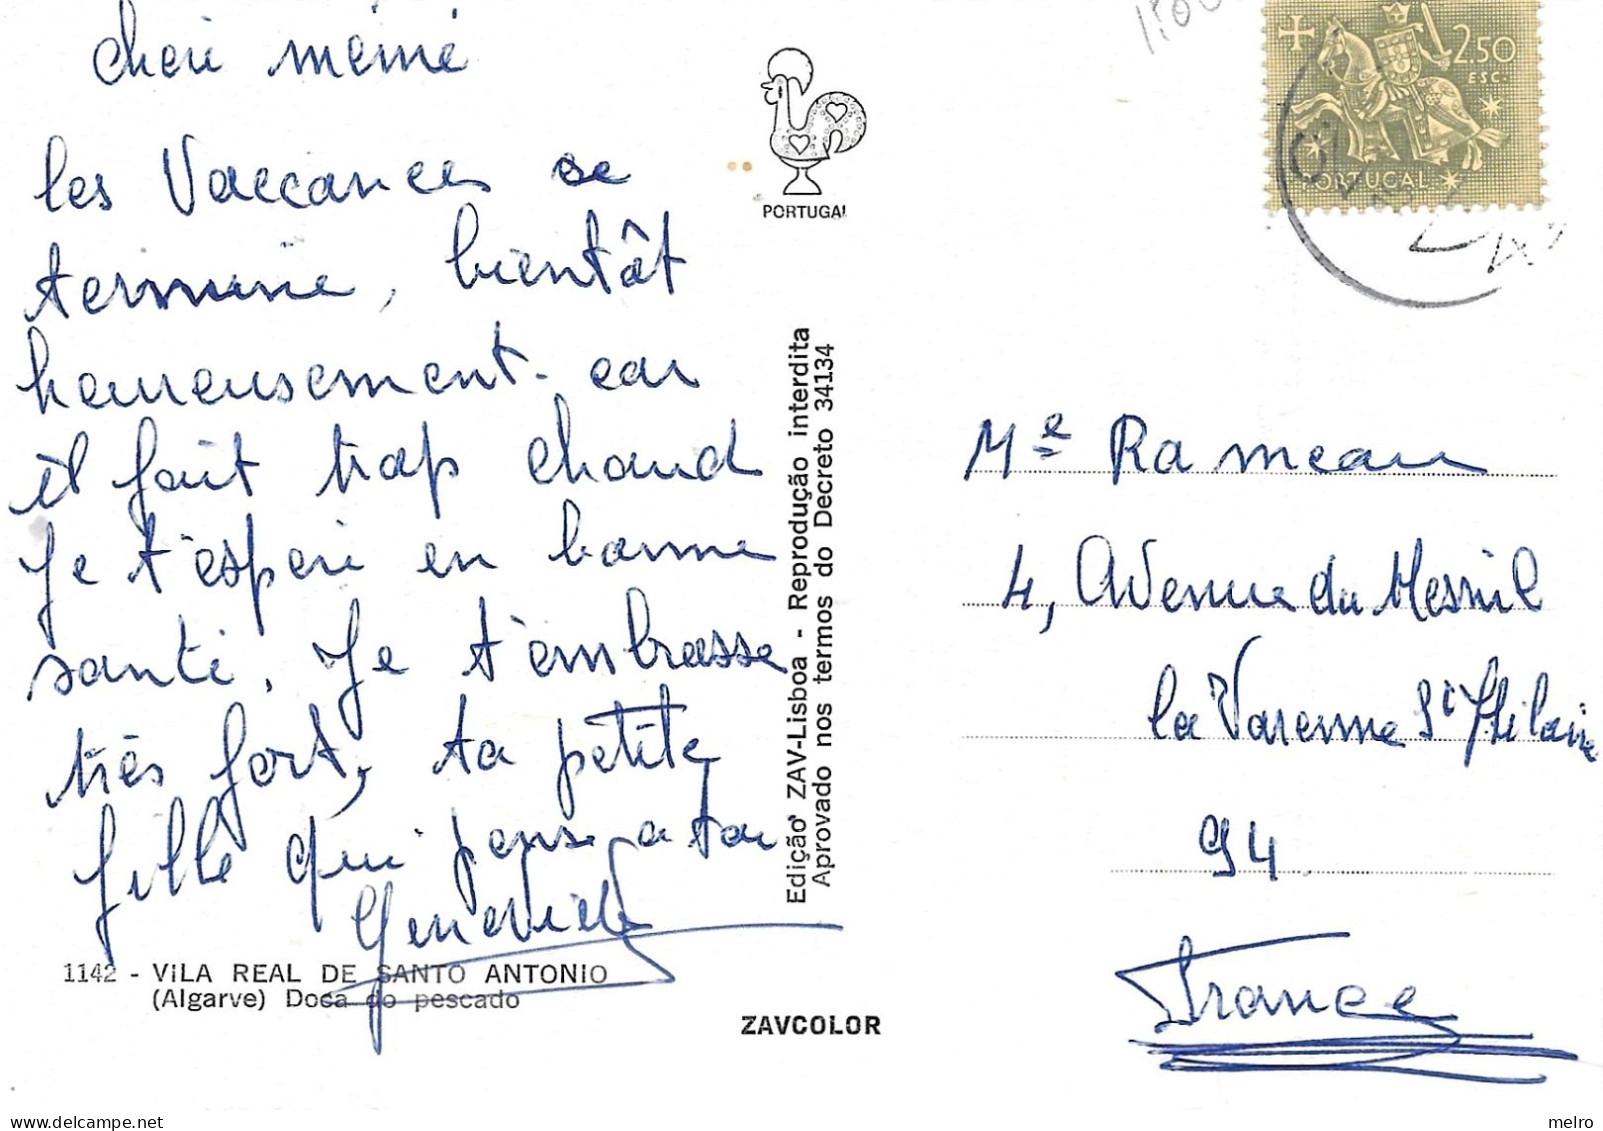 cheie mémé
les Vaccances se
termine, bientôt
heureusement. car
il fait trop chaud
Je t'espere en bonne
santé. Je t'embrasse
très fort, ta petite
fille qui pense a toi
Geneviève
1142 - VILA REAL DE SANTO ANTONIO
(Algarve) Doca do pescado
PORTUGAL
Edição ZAV-Lisboa - Reprodução interdita
Aprovado nos termos do Decreto 34134
ZAVCOLOR
2.50
ESC.
PORTUGAL
Me Rameau
4, Avenue du Mesnil
la Varenne St Hilaire
94.
France
melro